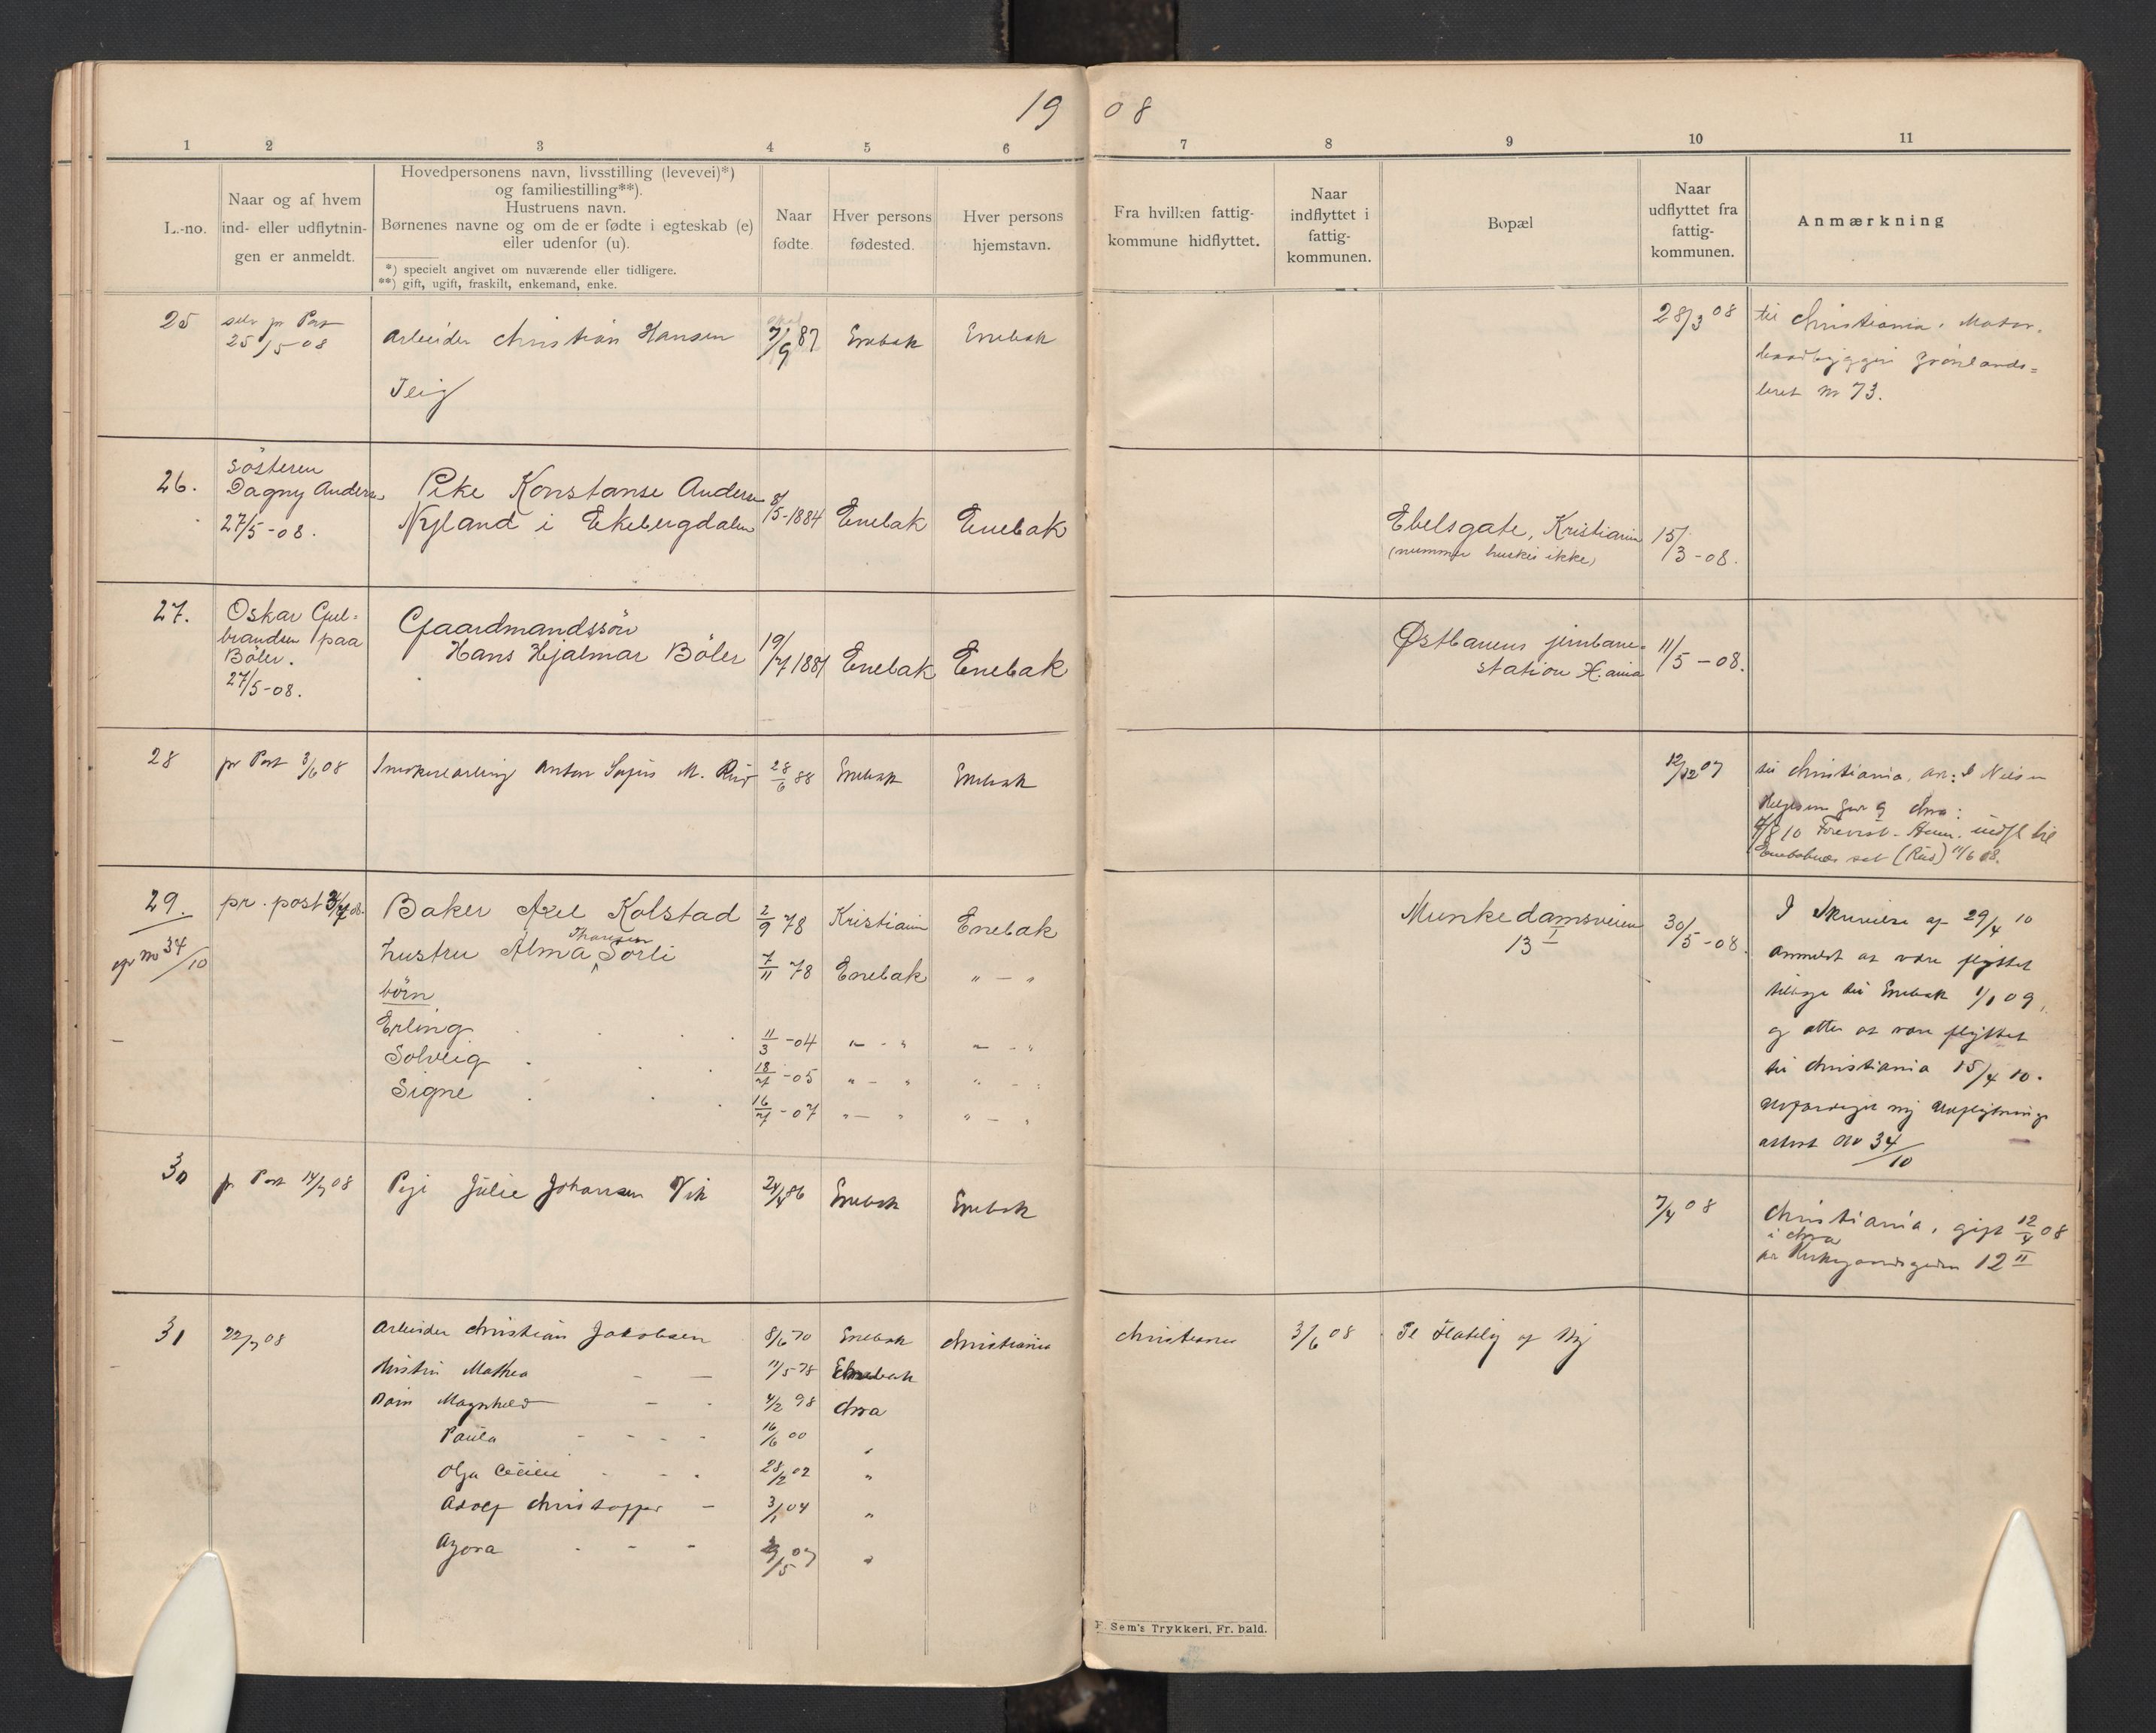 19 08
1 2 3 4 5 6 7 8 9 10 11
L.-no.
Naar og af hvem
ind- eller udflytnin-
gen er anmeldt.
Hovedpersonens navn, livsstilling (levevei)*)
og familiestilling**).
Hustruens navn.
Børnenes navne og om de er fødte i egteskab (e)
eller udenfor (u).
*) specielt angivet om nuværende eller tidligere.
**) gift, ugift, fraskilt, enkemand, enke.
Naar
fødte.
Hver persons
fødested.
Hver persons
hjemstavn.
Fra hvilken fattig-
kommune hidflyttet.
Naar
indflyttet i
fattig-
kommunen.
Bopæl
Naar
udflyttet fra
fattig-
kommunen.
Anmærkning
25
selv pr Post
25/5-08
Arbeider Christian Hansen
Teig
7/9 87
Enebak
Enebak
28/3 08
til Christiania, Motor-
baadbyggeri Grönlands=
leret No 73.
26.
Søsteren
Dagny Andersen
27/5-08.
Pike Konstanse Andersen
Nyland i Ekebergdalen
8/5-1884
Enebak
Enebak
Ebelsgate, Kristiania
(nummer huskes ikke)
15/3-08.
27.
Oskar Gul=
brandsen paa
Böler.
27/5-08.
Gaardmandssön
Hans Hjalmar Böler
19/7 1881
Enebak
Enebak
Østbanens jernbane-
station K.ania
11/5-08.
28
pr Post 3/6 08
Anton M. Rud
28/6 88
Enebak
Enebak
12/12 07
til Christiania,
Enebaknes (Rud) 11/6 08.
29.
cfr No 34/10
pr. post
Baker Axel Kolstad
2/9 78
Kristiania
Enebak
Munkedamsveien
13 I
30/5-08.
hustru Alma Thoresen Sörli
7/11 78
Enebak
" - "
börn
Erling
11/3-04
" - "
" - "
Solveig
18/7-05
" - "
" - "
Signe
16/7-07
" - "
" - "
I Skrivelse af 29/4 10
anmeldt at være flyttet
tilbage til Enebak 1/1 09,
og atter at være flyttet
til Christiania 15/4 10.
Udfærdiget ny Udflytnings
attest No 34/10
30
pr Post 14/7 08
Pige Julie Johansen Vik
24/4 86
Enebak
Enebak
7/4 08
Christiania, gift 12/4 08
i Chra
12 II
31
22/7 08
Arbeider Christian Jakobsen
8/6 70
Enebak
Christiania
Christiania
3/6 08
Mathea
11/5 78
Enebak
Børn Magnhild
4/2 98
Chra
Paula
16/6 00
"
Olga Cecilie
28/2 02
"
Adolf Christoffer
3/1 04
"
Agora
"
F. Sem's Trykkeri, Fr. hald.